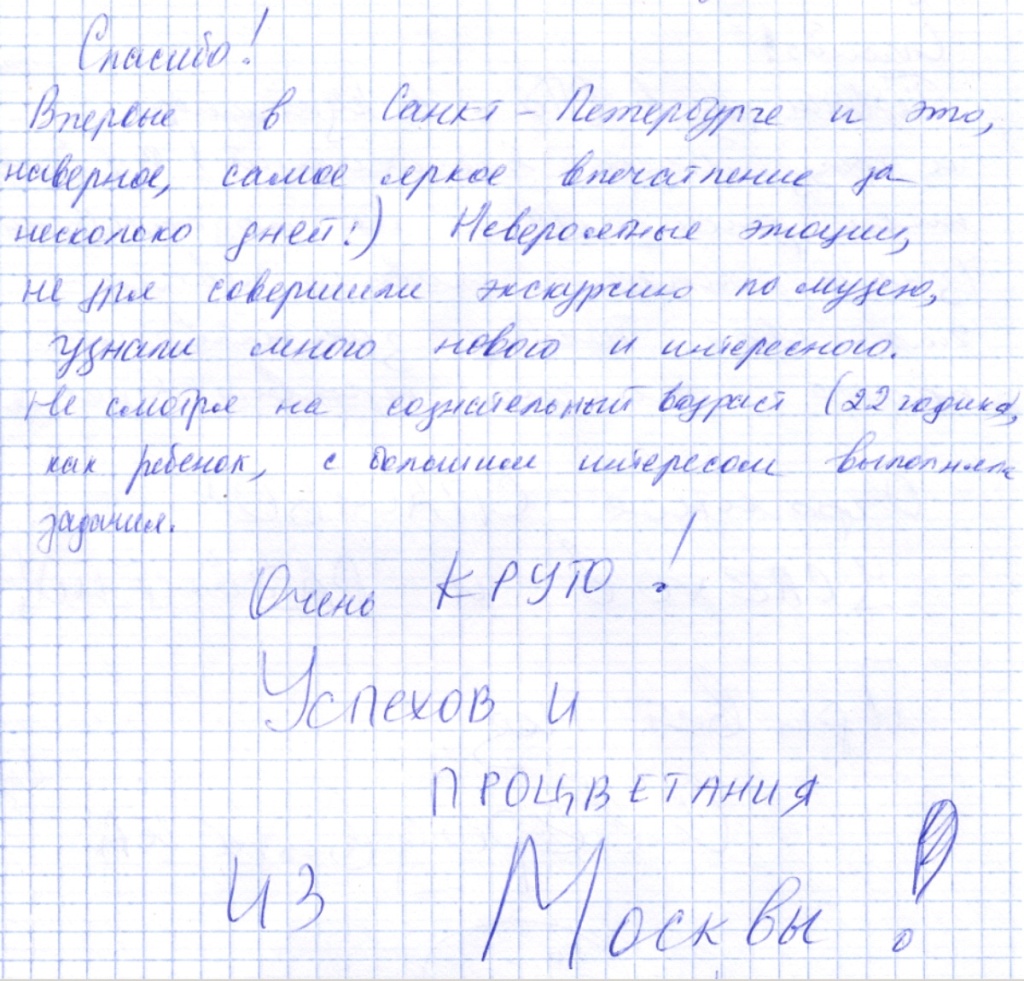 Спасибо!
Впервые в Санкт-Петербурге и это,
наверное, самое яркое впечатление за
несколько дней:) Невероятные эмоции,
не зря совершили экскурсию по музею,
узнали много нового и интересного.
Не смотря на сознательный возраст (22 годика),
как ребенок, с большим интересом выполняла
задания.
Очень КРУТО!
Успехов и
ПРОЦВЕТАНИЯ
ИЗ Москвы!